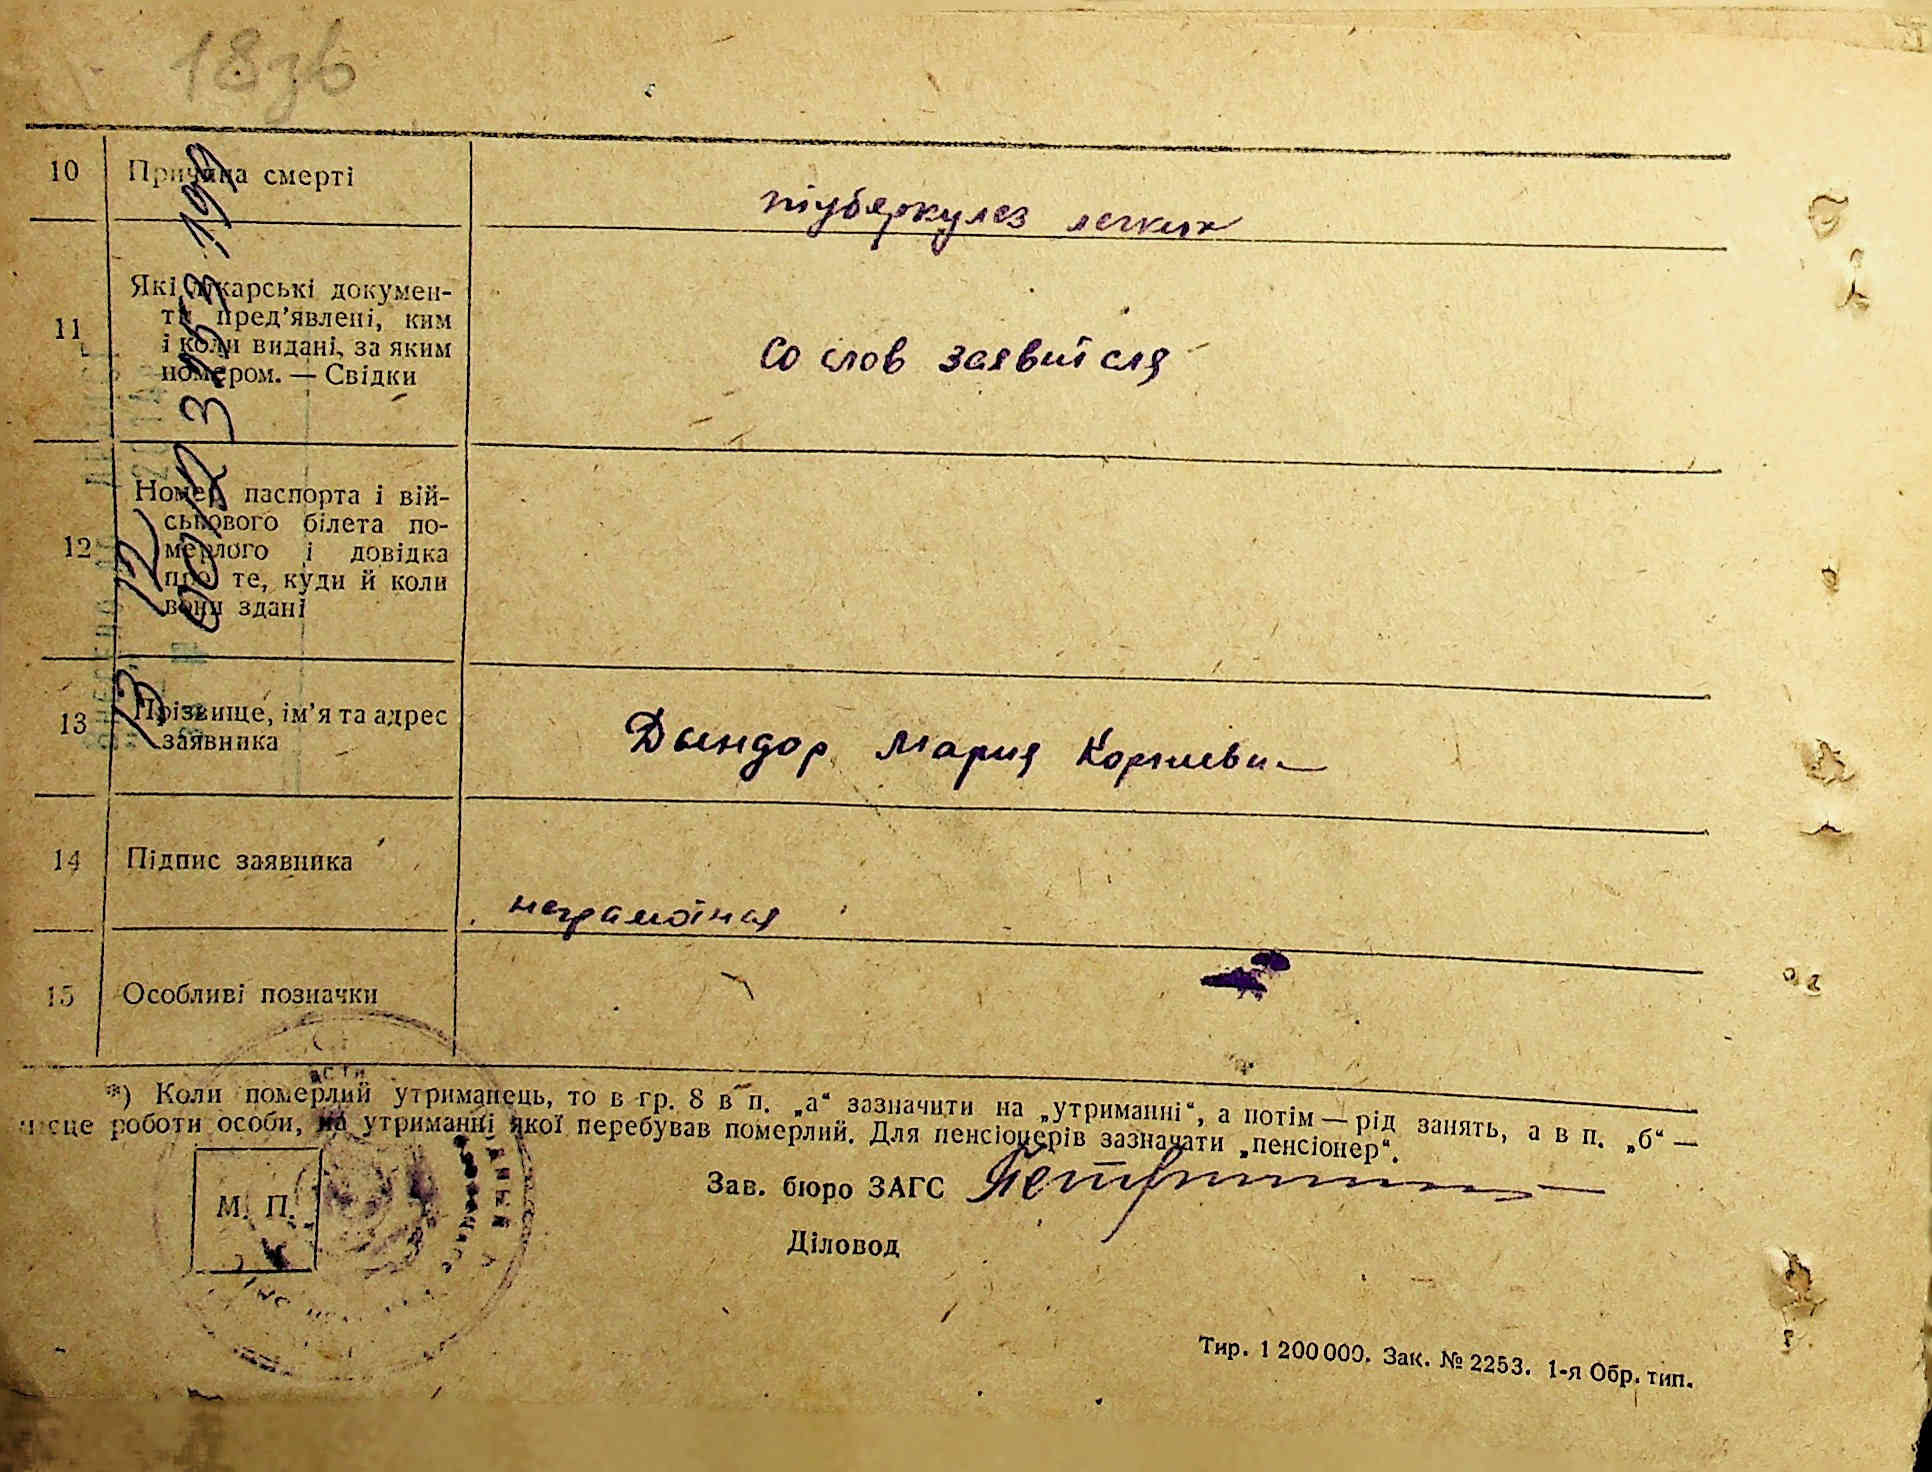 18зв
10 Причина смерті
туберкулез легких
11 Які лікарські докумен-
ти пред'явлені, ким
і коли видані, за яким
номером. — Свідки
со слов заявителя
12 Номер паспорта і вій-
ськового білета по-
мерлого і довідка
про те, куди й коли
вони здані
13 Прізвище, ім'я та адрес
заявника
Дындор Мария Корниевн
14 Підпис заявника
неграмотная
15 Особливі позначки
*) Коли померлий утриманець, то в гр. 8 в п. „а“ зазначити на „утриманні“, а потім — рід занять, а в п. „б“ —
місце роботи особи, на утриманні якої перебував померлий. Для пенсіонерів зазначати „пенсіонер“.
М. П.
Зав. бюро ЗАГС
Діловод
Тир. 1 200 000. Зак. № 2253. 1-я Обр. тип.